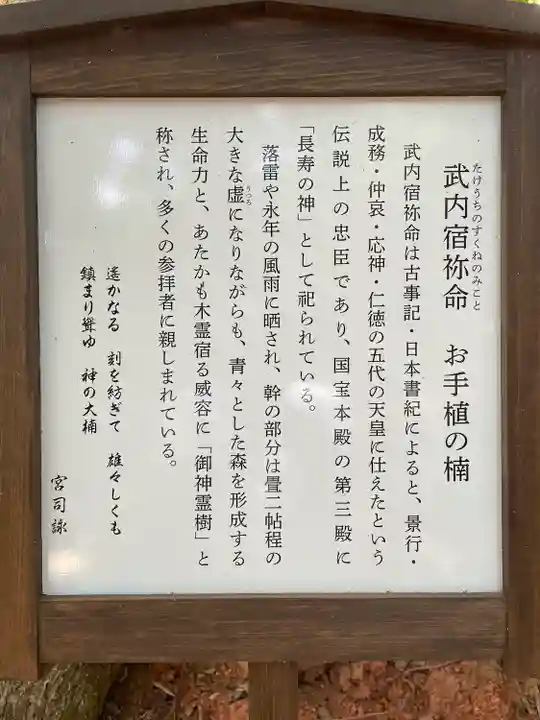 たけうちのすくねのみこと
武内宿祢命 お手植の楠
武内宿祢命は古事記・日本書紀によると、景行・
成務・仲哀・応神・仁徳の五代の天皇に仕えたという
伝説上の忠臣であり、国宝本殿の第三殿に
「長寿の神」として祀られている。
落雷や永年の風雨に晒され、幹の部分は畳二帖程の
うつろ
大きな虚になりながらも、青々とした森を形成する
生命力と、あたかも木霊宿る威容に「御神霊樹」と
称され、多くの参拝者に親しまれている。
遥かなる 刻を紡ぎて 雄々しくも
鎮まり聳ゆ 神の大楠
宮司詠